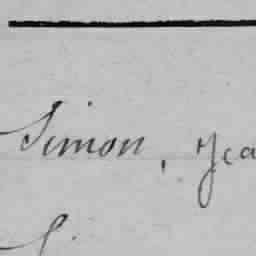 Simon, Jea